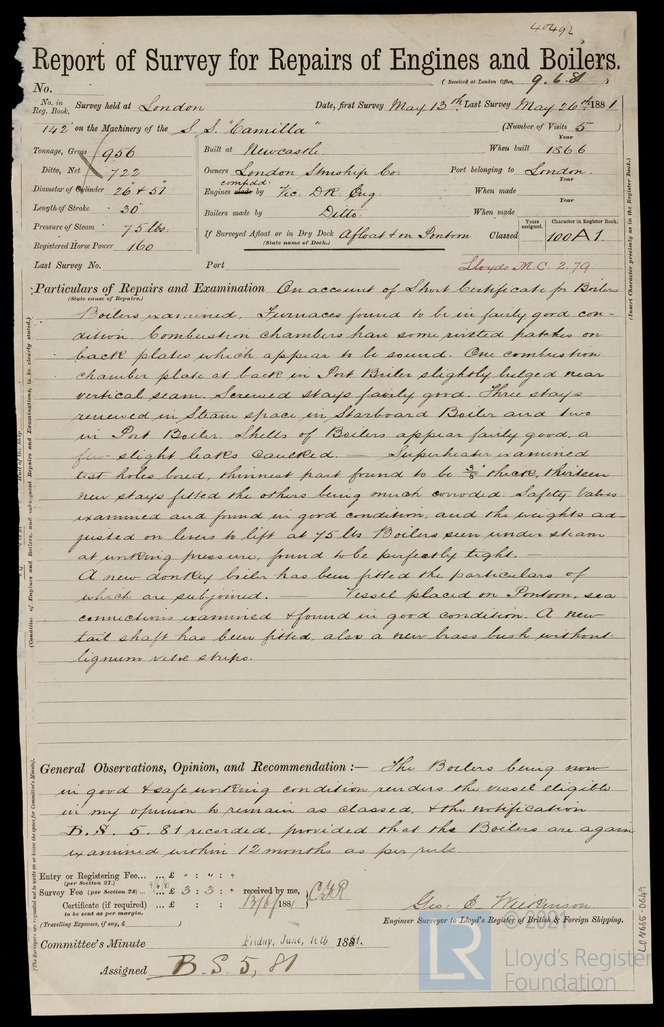 40492
Report of Survey for Repairs of Engines and Boilers.
(Received at London Office, 9.6.81)
No.
No. in Reg. Book. Survey held at London Date, first Survey May 13th Last Survey May 26th 1881
142 on the Machinery of the S.S. "Camilla" (Number of Visits 5)
Tonnage, Gross 956 Built at Newcastle When built Year 1866
Ditto, Net 722 Owners London Steamship Co. Port belonging to London
Diameter of Cylinder 26" & 51" Engines compdd. made by Vic. DR. Eng. When made Year
Length of Stroke 30" Boilers made by Ditto When made Year
Pressure of Steam 75 lbs. If Surveyed Afloat or in Dry Dock Afloat & on Pontoon Classed Years assigned. Character in Register Book. 100 A 1.
(State name of Dock.)
Registered Horse Power 160
Last Survey No. Port Lloyds M.C. 2.79
Particulars of Repairs and Examination On account of Short Certificate for Boilers
(State cause of Repairs.)
Boilers examined. Furnaces found to be in fairly good con-
dition. Combustion chambers have some riveted patches on
back plates which appear to be sound. One combustion
chamber plate at back in Port Boiler slightly bulged near
vertical seam. Screwed stays fairly good. Three stays
renewed in Steam space in Starboard Boiler and two
in Port Boiler. Shells of Boilers appear fairly good, a
few slight leaks caulked. — Superheater examined
test holes bored, thinnest part found to be 3/8" thick, thirteen
new stays fitted the others being much corroded. Safety Valves
examined and found in good condition, and the weights ad-
justed on levers to lift at 75 lbs. Boilers seen under steam
at working pressure, found to be perfectly tight. —
A new donkey boiler has been fitted the particulars of
which are subjoined. — Vessel placed on Pontoon, sea
connections examined & found in good condition. A new
tail shaft has been fitted, also a new brass bush without
lignum vitæ strips.
General Observations, Opinion, and Recommendation :— The Boilers being now
in good & safe working condition renders the vessel eligible
in my opinion to remain as classed, & the notification
B.S. 5.81 recorded, provided that the Boilers are again
examined within 12 months as per rule
Entry or Registering Fee... ... £ " : " : "
(per Section 27.)
Survey Fee (per Section 28) ... ... £ 3 : 3 : " received by me,
Certificate (if required) ... £ : : 13/6/1881 CGR
to be sent as per margin.
(Travelling Expenses, if any, £ )
Geo. C. Wilkinson
Engineer Surveyor to Lloyd's Register of British & Foreign Shipping.
Committee's Minute Friday, June, 10th 1881.
Assigned B.S. 5, 81
(Insert Character precisely as in the Register Book.)
(Condition of Engines and Boilers, and subsequent Repairs and Examinations, to be clearly stated.)
(The Surveyors are requested not to write on or below the space for Committee's Minute).
LON665-0649
© 2021
LR
Lloyd's Register
Foundation